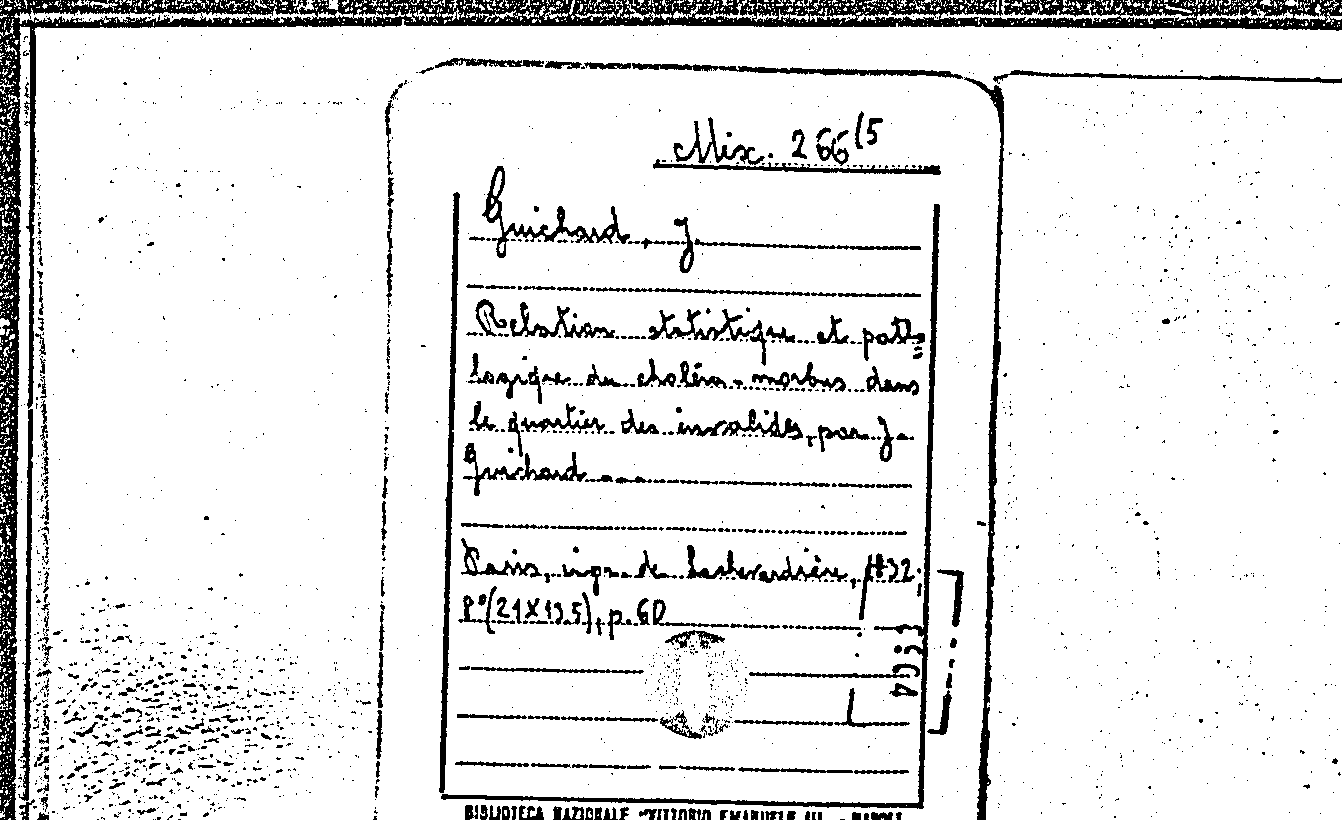 Misc. 266(5
Guichard, J.
Relation statistique et patho=
logique du choléra-morbus dans
le quartier des invalides, par J.
Guichard ...
Paris, impr. de 1832;
8°(21X13.5), p. 60
BIBLIOTECA NAZIONALE "VITTORIO EMANUELE III" - NAPOLI